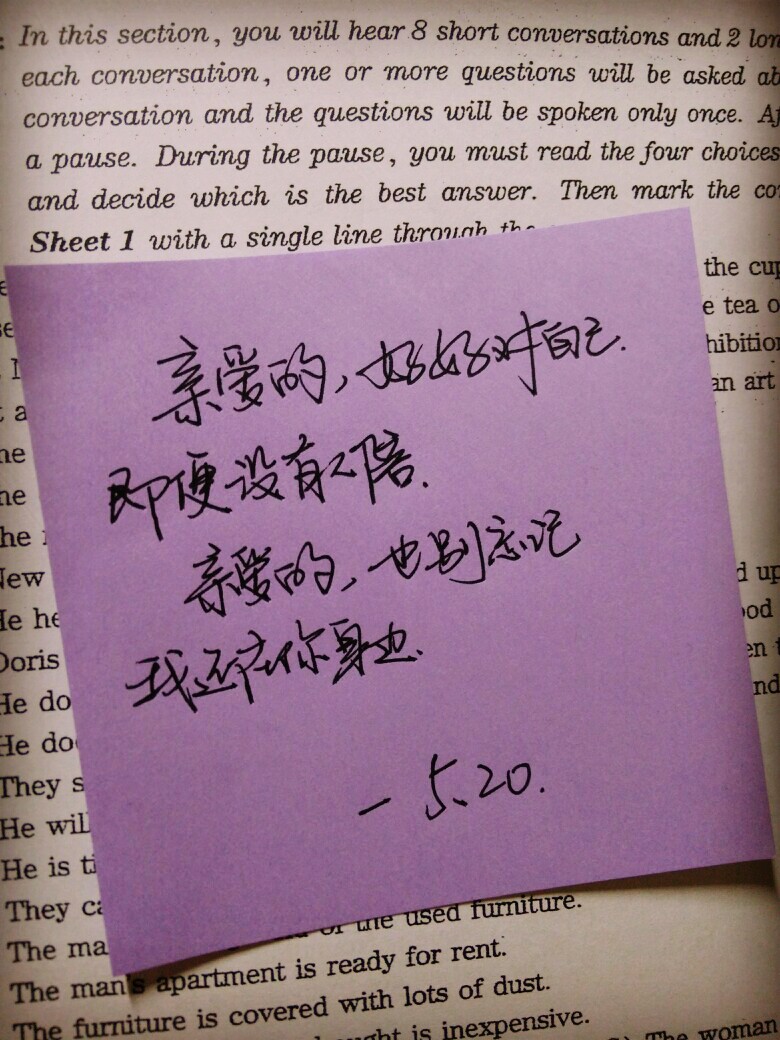 : In this section, you will hear 8 short conversations and 2 lon
each conversation, one or more questions will be asked ab
conversation and the questions will be spoken only once. Af
a pause. During the pause, you must read the four choices
and decide which is the best answer. Then mark the co
Sheet 1 with a single line through the
the cup
e tea o
hibition
an art
亲爱的,好好对自己.
即便没有人陪.
亲爱的,也别忘记
我还在你身边.
- 5.20.
he
he
he
New
He he
Doris
He do
He do
They s
He will
He is ti
They ca
d up
ood
en t
nd
The ma
of the used furniture.
The man's apartment is ready for rent.
The furniture is covered with lots of dust.
ught is inexpensive.
The woman